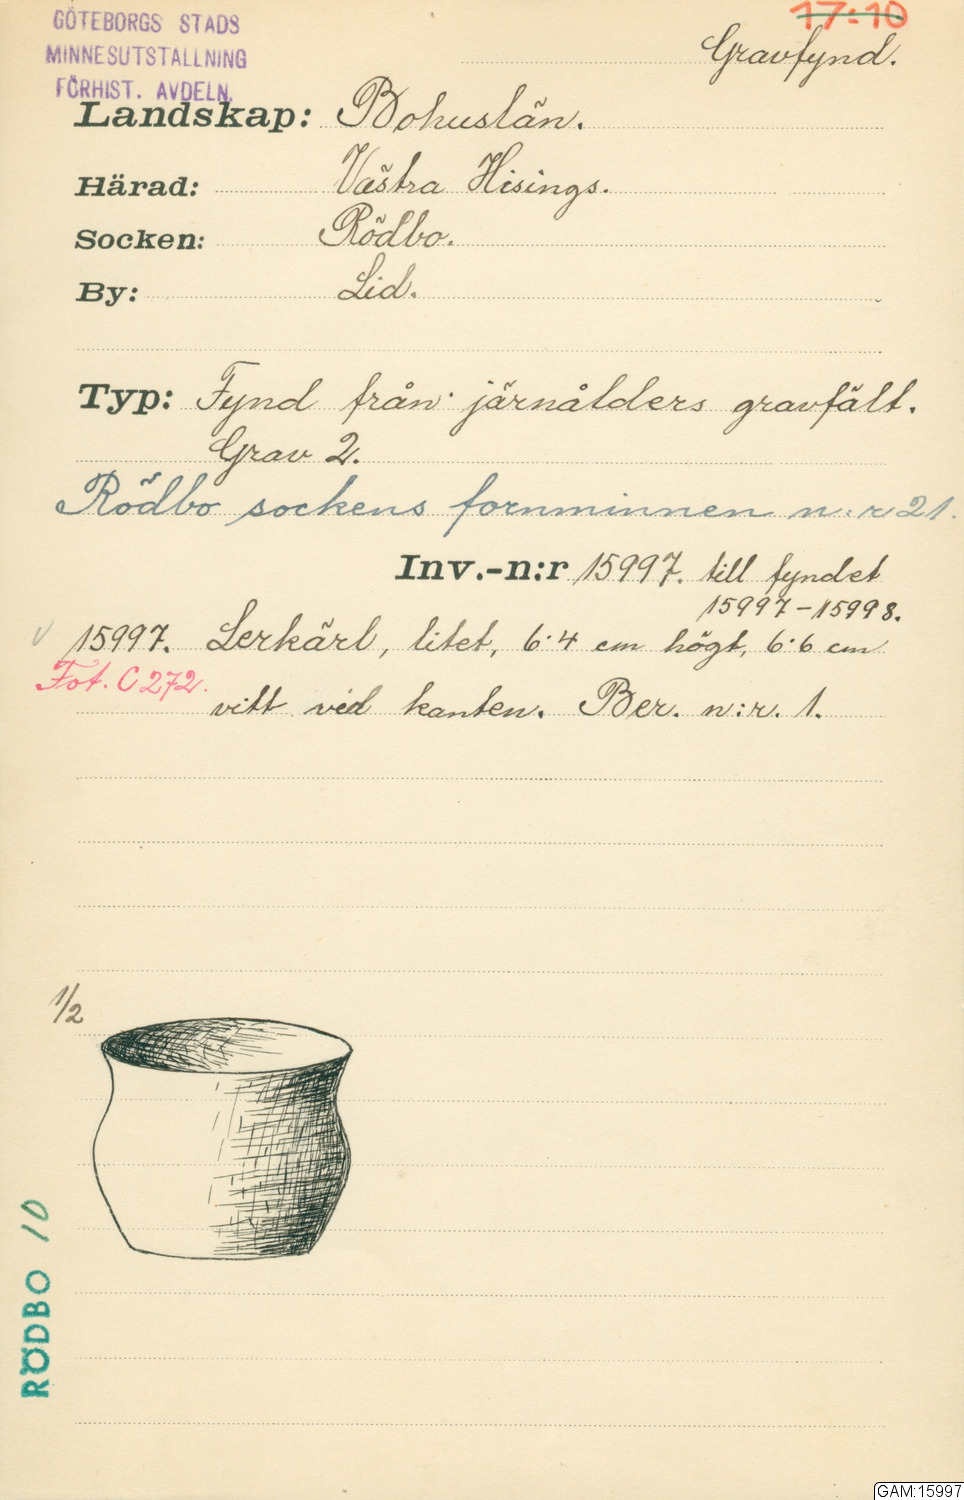 GÖTEBORGS STADS
MINNESUTSTALLNING
FÖRHIST. AVDELN.
17:10
Gravfynd.
Landskap: Bohuslän.
Härad: Västra Hisings.
Socken: Rödbo.
By: Lid.
Typ: Fynd från järnålders gravfält.
Grav 2.
Rödbo sockens fornminnen n:r 21.
Inv.-n:r 15997. till fyndet
15997-15998.
V 15997. Lerkärl, litet, 6·4 cm högt, 6·6 cm
Fot. C 272.
vitt vid kanten. Ber. n:r. 1.
1/2
RÖDBO 10
GAM:15997